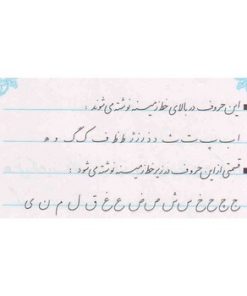 این حروف در بالای خط زمینه نوشته می‌شوند :
ا ب پ ت ث د ذ ر ز ژ ط ظ ف ک گ و ه
قسمتی از این حروف در زیر خط زمینه نوشته می‌شود :
ج چ ح خ س ش ص ض ع غ ق ل م ن ی